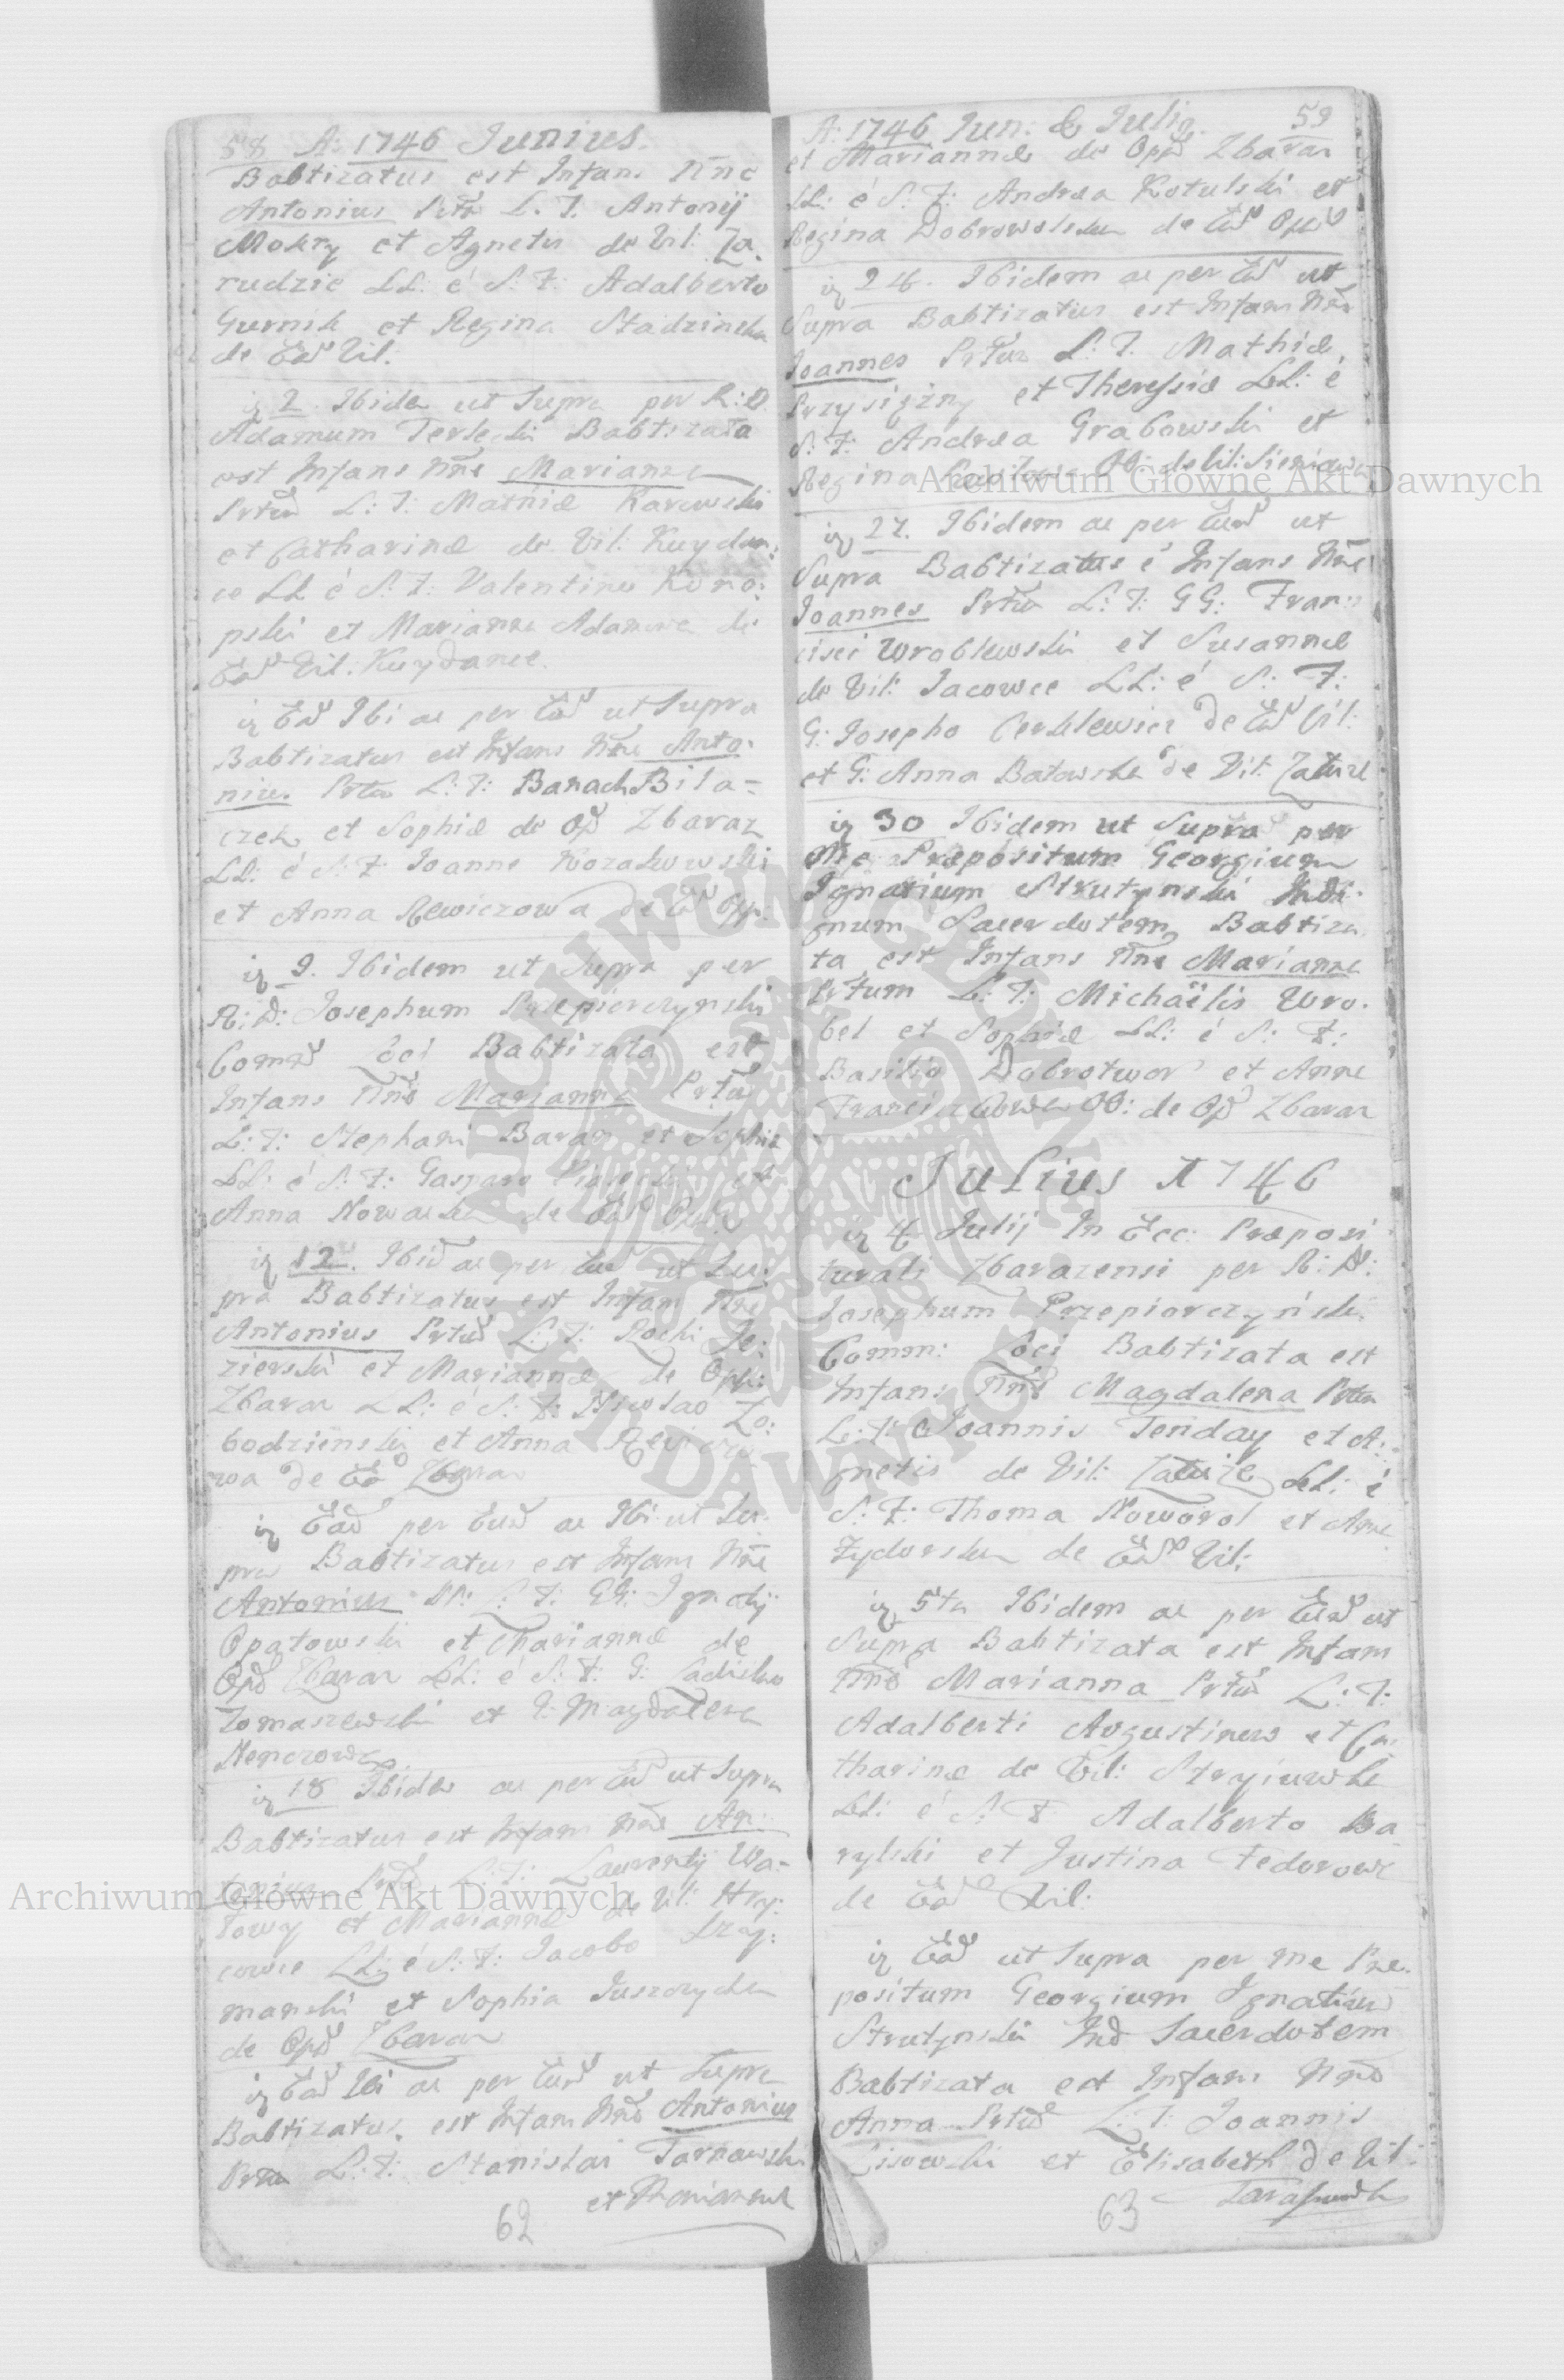 58 A: 1746 Junius.
Babtizatus est Infans Nne
Antonius Prtū L. T. Antonij
Mokry et Agnetis de Vil: Za.
rudzie LL: é S: F: Adalberto
Gurnik et Regina Stadzinska
de Ead Vil:
2. Ibidem ut Supra per R: D
Adamum Terlecki Babtizata
est Infans Nne Marianna
Prtū L: T: Mathiæ Karewski
et Catharinæ de Vil: Kuydan:
ce LL é S: F: Valentino Kono:
pski et Marianna Adamowa de
Ead Vil: Kuydance.
Ead Ibi ac per Eūd ut Supra
Babtizatus est Infans Nne Anto:
nius Prtū L: T: Banach Bila=
czek et Sophiæ de Op Zbaraz
LL: é S: F Joanne Kozakowski
et Anna Rewiczowa de Ead Opp:
9. Ibidem ut Supra per
R: D: Josephum Przepiorczynski
Comm Loci Babtizata est
Infans Nne Marianna Prtū
L: T: Stephani Baran et Sophiæ
LL: é S: F: Gasparo et
Anna Nowacka de Ead Opp
12. Ibid ac per Eūd ut Su:
pra Babtizatus est Infans Nne
Antonius Prtū L: T: Rochi Je:
zierski et Mariannæ de Opp:
Zbaraz LL: é S: F: Zo:
bodzienski et Anna
wa de Ead Zbaraz
Ead per Eūd ac Ibi ut Su:
pra Babtizatus est Infans Nne
Antonius Pr: L: T: GG: Ignatij
Opatowski et Mariannæ de
Opd Zbaraz LL: é S: F: G: Ladislao
Tomaszewski et G: Magdalena
18 Ibidem ac per Eūd ut Supra
Babtizatus est Infans Nne An:
tonius Prtū L: T: Laurentij Wa=
towy et Mariannæ de Vil: Hry:
cowce LL: é S: F: Jacobo Szay:
manski et Sophia Juszczycka
de Opd Zbaraz
Ead Ibi ac per Eūd ut Supra
Babtizatus est Infans Nne Antonius
Prtū L: T: Stanislai Tarnawski
et Mariannæ
62
A: 1746 Jun: & Julig. 59
et Mariannæ de Opd Zbaraz
LL: é S: F: Andrea Kotulski et
Regina Dobrowolska de Ead Oppd
24. Ibidem ac per Eūd ut
Supra Babtizatus est Infans Nne
Joannes Prtū L: T. Mathiæ
Przysięzny et Theressiæ LL: é
S: F: Andrea Grabowski et
Regina OO: de Vil: Sieniawa
27. Ibidem ac per Eūd ut
Supra Babtizatus é Infans Nne
Joannes Prtū L: T: GG: Fran:
cisci Wroblewski et Susannæ
de Vil: Jacowce LL: é S: F:
G: Josepho Cerklewicz de Ead Vil:
et G: Anna Batowska de Vil: Załuze
30 Ibidem ut Supra per
Me Præpositum Georgium
Ignatium Strutynski Indi:
gnum Sacerdotem Babtiza
ta est Infans Nne Marianna
Prtum L: T: Michaëlis Wro.
bel et Sophiæ LL: é S: F:
Basilio Dobrotwor et Anna
OO: de Opd Zbaraz
Julius 1746
4 Julij In Ecc: Præposi
turali Zbarazensi per R: D:
Josephum Przepiorczyński
Comm: Loci Babtizata est
Infans Nne Magdalena Prtū
L: T: Joannis Tenday et A:
gnetis de Vil: Załuże LL: é
S: F: Thoma Noworol et Anna
Zydorska de Ead Vil:
5ta Ibidem ac per Eūd ut
Supra Babtizata est Infans
Nne Marianna Prtū L: T:
Adalberti Augustinow et Ca
tharinæ de Vil: Stryiuwka
LL: é S: F Adalberto Ba
rylski et Justina Fedorowa
de Ead Vil:
Ead ut Supra per me Præ.
positum Georgium Ignatium
Strutynski Ind Sacerdotem
Babtizata est Infans Nne
Anna Prtū L: T: Joannis
Lisowski et Elisabeth de Vil:
63
Archiwum Główne Akt Dawnych
Archiwum Główne Akt Dawnych
ARCHIWUM GŁÓWNE AKT DAWNYCH